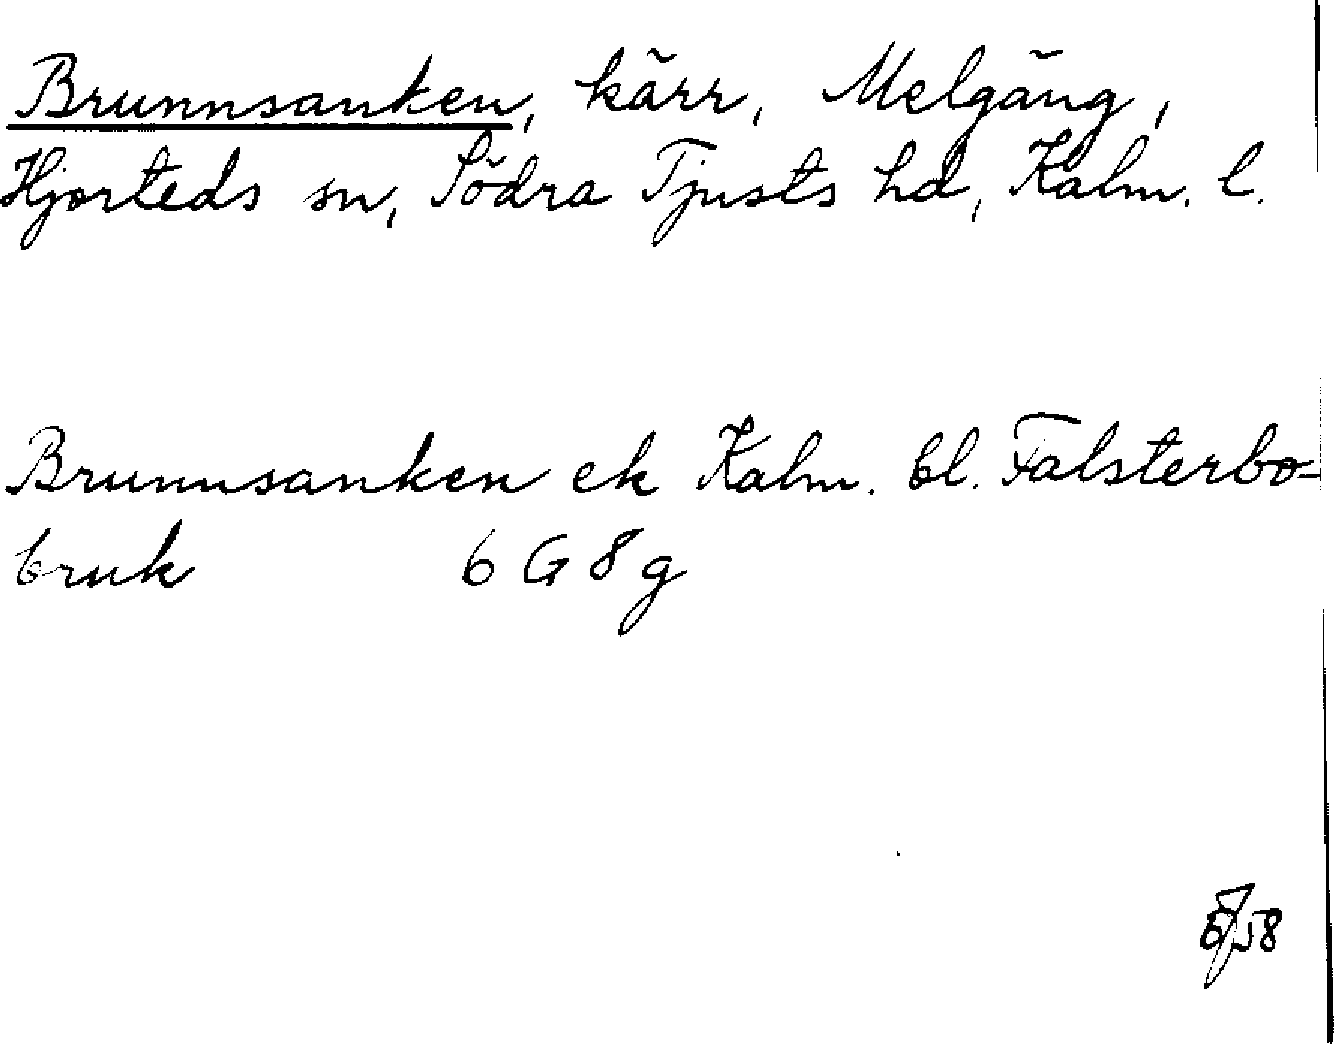 Brunnsanken, kärr, Melgäng,
Hjorteds sn, Södra Tjusts hd, Kalm. l.
Brunnsanken ek Kalm. bl. Falsterbo-
bruk 6 G 8 g